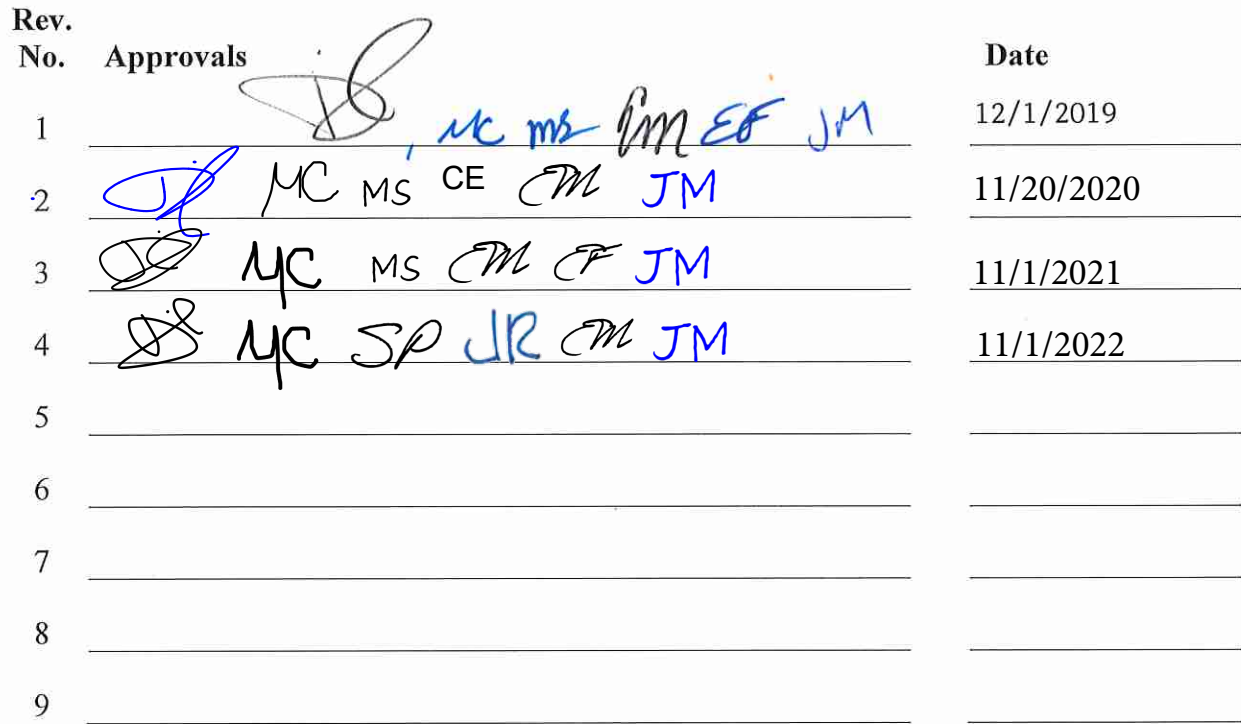 Rev.
No. Approvals Date
1 MC MS EF JM 12/1/2019
2 MC MS CE CM JM 11/20/2020
3 MC MS CM CF JM 11/1/2021
4 MC SP JR CM JM 11/1/2022
5
6
7
8
9